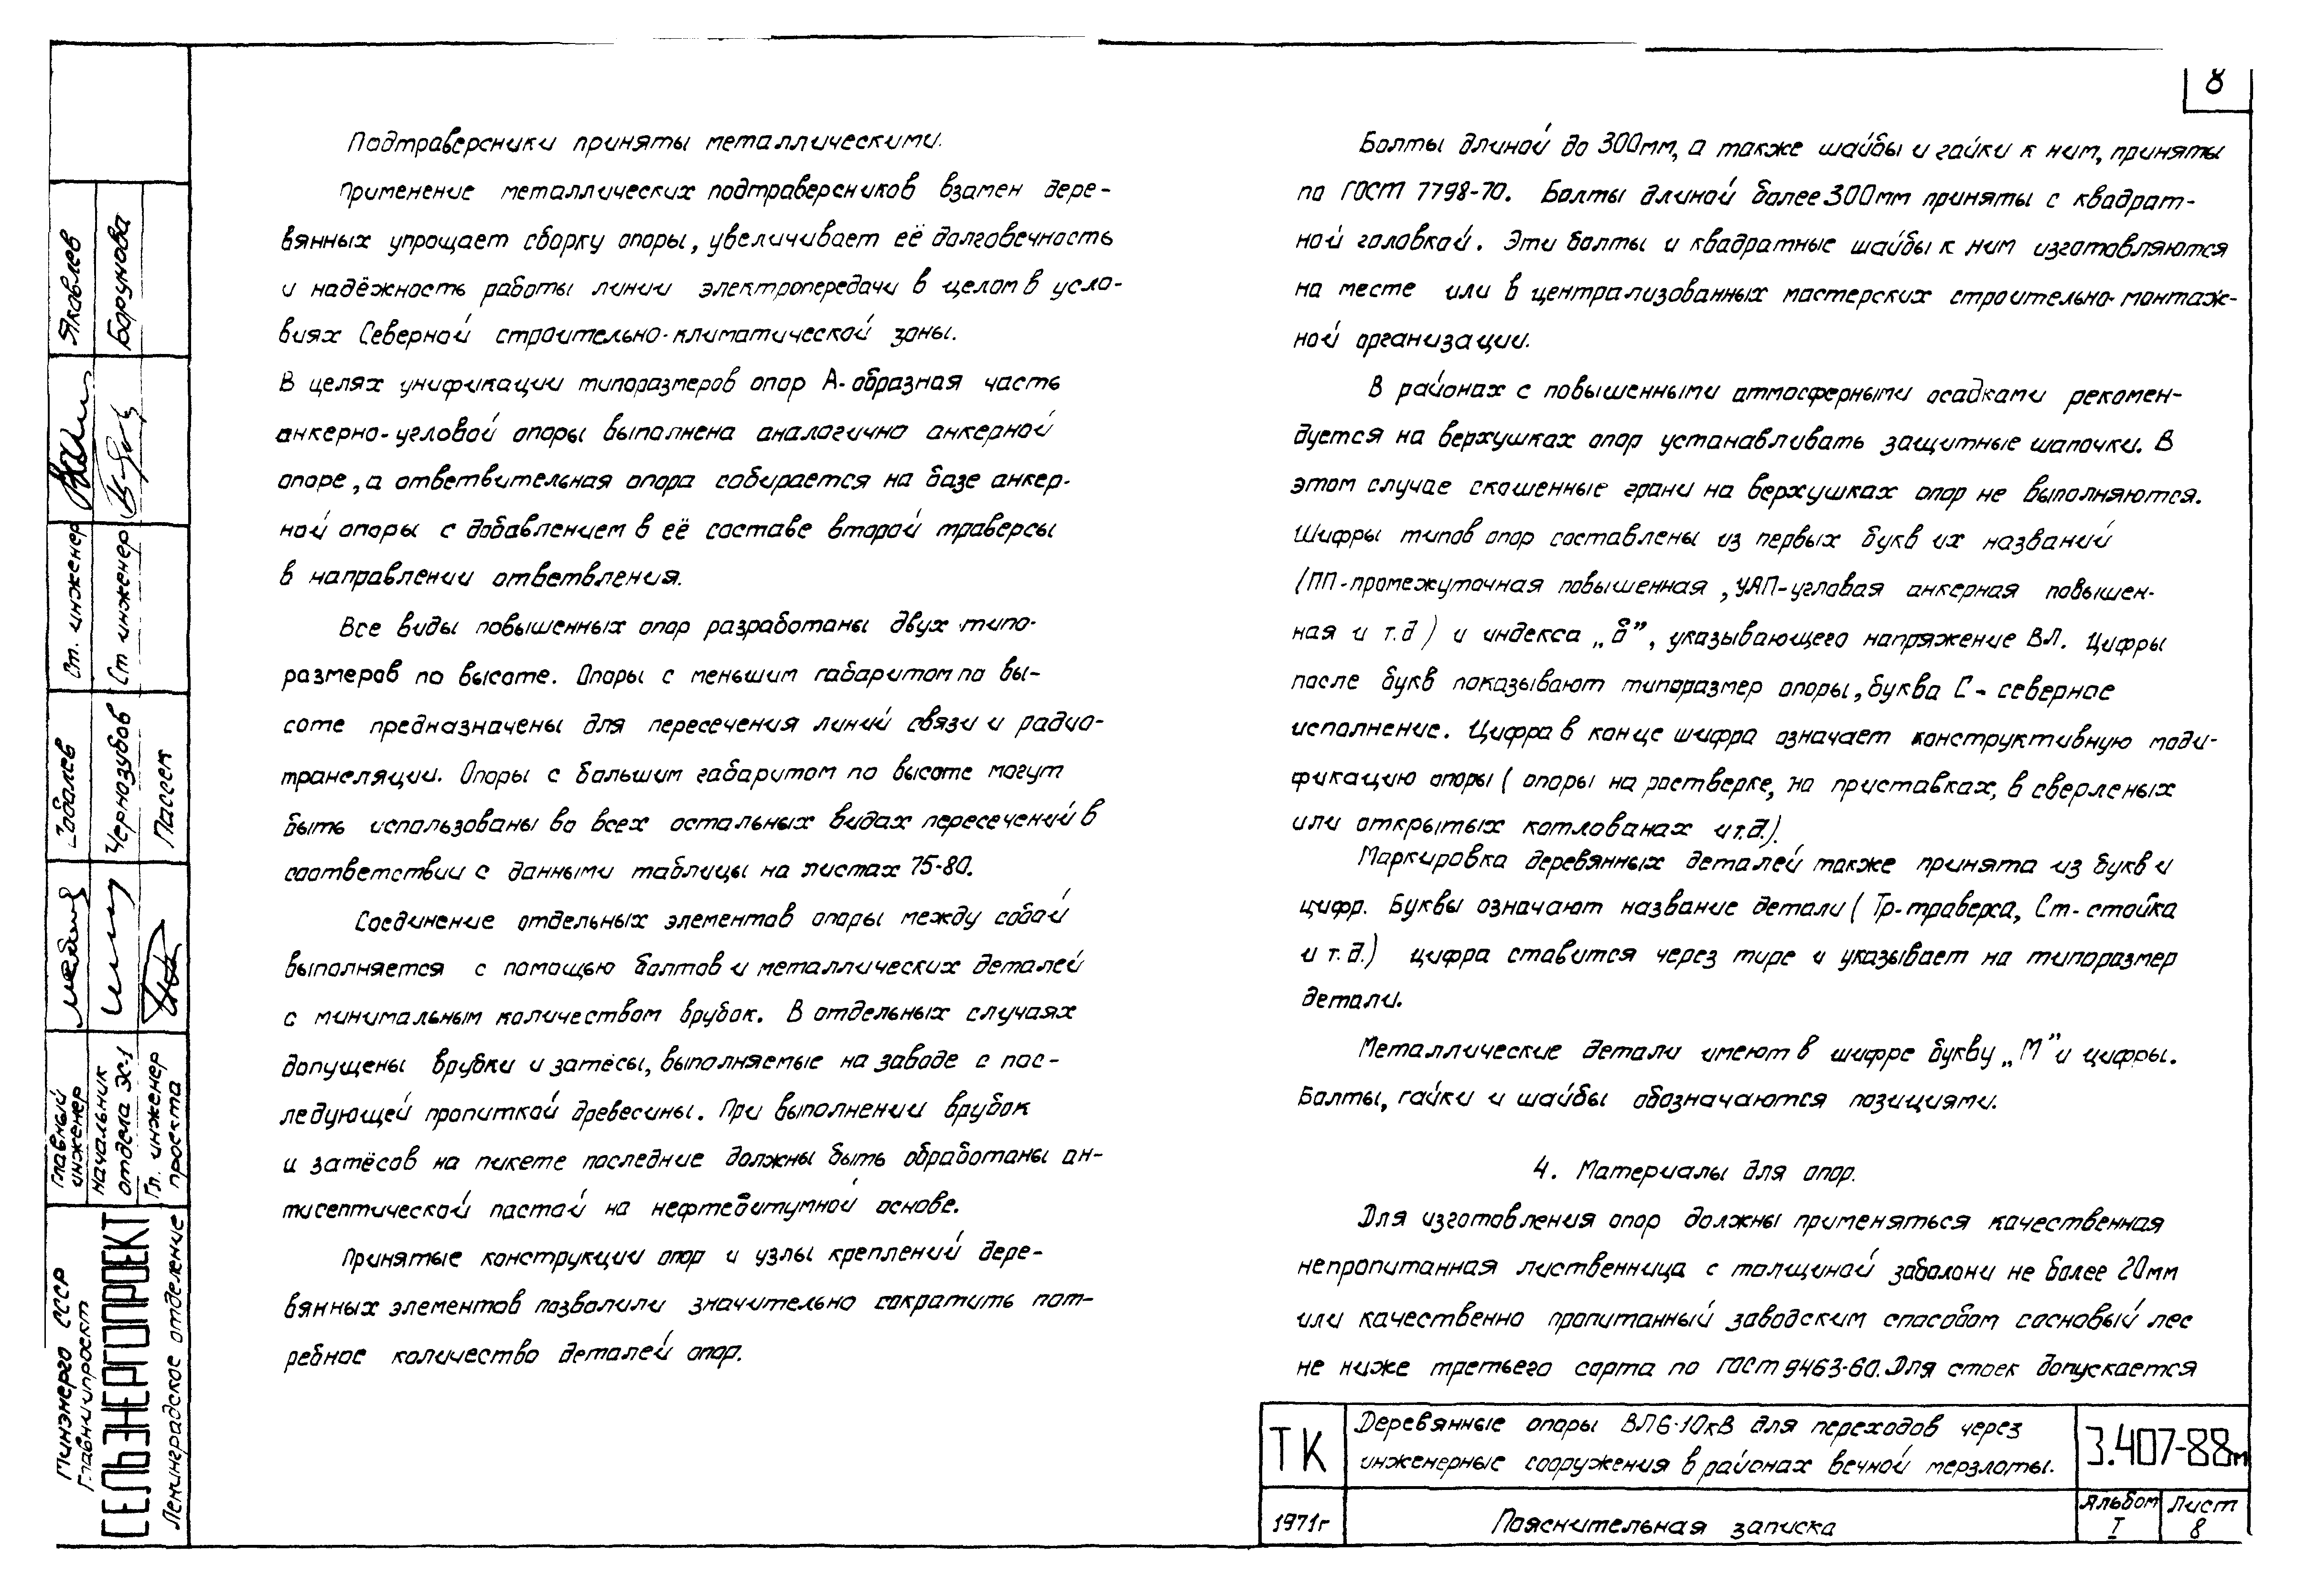 8
Подтраверсники приняты металлическими.
Применение металлических подтраверсников взамен дере-
вянных упрощает сборку опоры, увеличивает её долговечность
и надёжность работы линии электропередачи в целом в усло-
виях Северной строительно-климатической зоны.
В целях унификации типоразмеров опор А-образная часть
анкерно-угловой опоры выполнена аналогично анкерной
опоре, а ответвительная опора собирается на базе анкер-
ной опоры с добавлением в её составе второй траверсы
в направлении ответвления.
Все виды повышенных опор разработаны двух типо-
размеров по высоте. Опоры с меньшим габаритом по вы-
соте предназначены для пересечения линий связи и радио-
трансляции. Опоры с большим габаритом по высоте могут
быть использованы во всех остальных видах пересечений в
соответствии с данными таблицы на листах 75-80.
Соединение отдельных элементов опоры между собой
выполняется с помощью болтов и металлических деталей
с минимальным количеством врубок. В отдельных случаях
допущены врубки и затёсы, выполняемые на заводе с пос-
ледующей пропиткой древесины. При выполнении врубок
и затёсов на пикете последние должны быть обработаны ан-
тисептической пастой на нефтебитумной основе.
Принятые конструкции опор и узлы креплений дере-
вянных элементов позволили значительно сократить пот-
ребное количество деталей опор.
Болты длиной до 300мм, а также шайбы и гайки к ним, приняты
по ГОСТ 7798-70. Болты длиной более 300мм приняты с квадрат-
ной головкой. Эти болты и квадратные шайбы к ним изготовляются
на месте или в централизованных мастерских строительно-монтаж-
ной организации.
В районах с повышенными атмосферными осадками рекомен-
дуется на верхушках опор устанавливать защитные шапочки. В
этом случае скошенные грани на верхушках опор не выполняются.
Шифры типов опор составлены из первых букв их названий
(ПП-промежуточная повышенная, УАП-угловая анкерная повышен-
ная и т.д) и индекса „б”, указывающего напряжение ВЛ. Цифры
после букв показывают типоразмер опоры, буква С - северное
исполнение. Цифра в конце шифра означает конструктивную моди-
фикацию опоры ( опоры на ростверке, на приставках, в сверленых
или открытых котлованах и т.д.).
Маркировка деревянных деталей также принята из букв и
цифр. Буквы означают название детали ( Тр-траверса, Ст-стойка
и т.д.) цифра ставится через тире и указывает на типоразмер
детали.
Металлические детали имеют в шифре букву „М” и цифры.
Болты, гайки и шайбы обозначаются позициями.
4. Материалы для опор.
Для изготовления опор должны применяться качественная
непропитанная лиственница с толщиной заболони не более 20мм
или качественно пропитанный заводским способом сосновый лес
не ниже третьего сорта по ГОСТ 9463-60. Для стоек допускается
ТК
Деревянные опоры ВЛ6-10кВ для переходов через
инженерные сооружения в районах вечной мерзлоты.
3.407-88м
1971г
Пояснительная записка
Альбом
I
Лист
8
Яковлев
Борунова
Ст. инженер
Ст инженер
Чернозубов
Пассек
Главный
инженер
начальник
отдела ЭС-1
Гл. инженер
проекта
Минэнерго СССР
Главниипроект
СЕЛЬЭНЕРГОПРОЕКТ
Ленинградское отделение